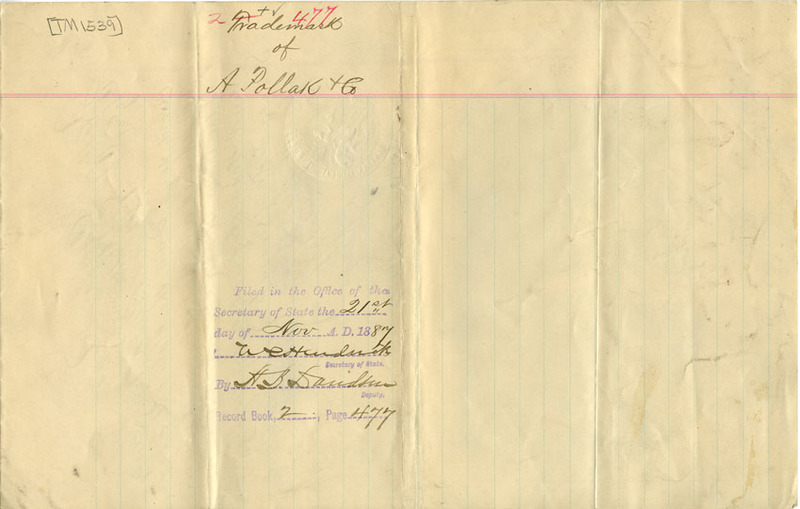 [TM1539]
2 477
Trademark
of
A Pollak & Co
Filed in the Office of the
Secretary of State the 21st
day of Nov A. D. 1887
W C Hendricks
Secretary of State.
By A B Davidson
Deputy.
Record Book, 2, Page 477